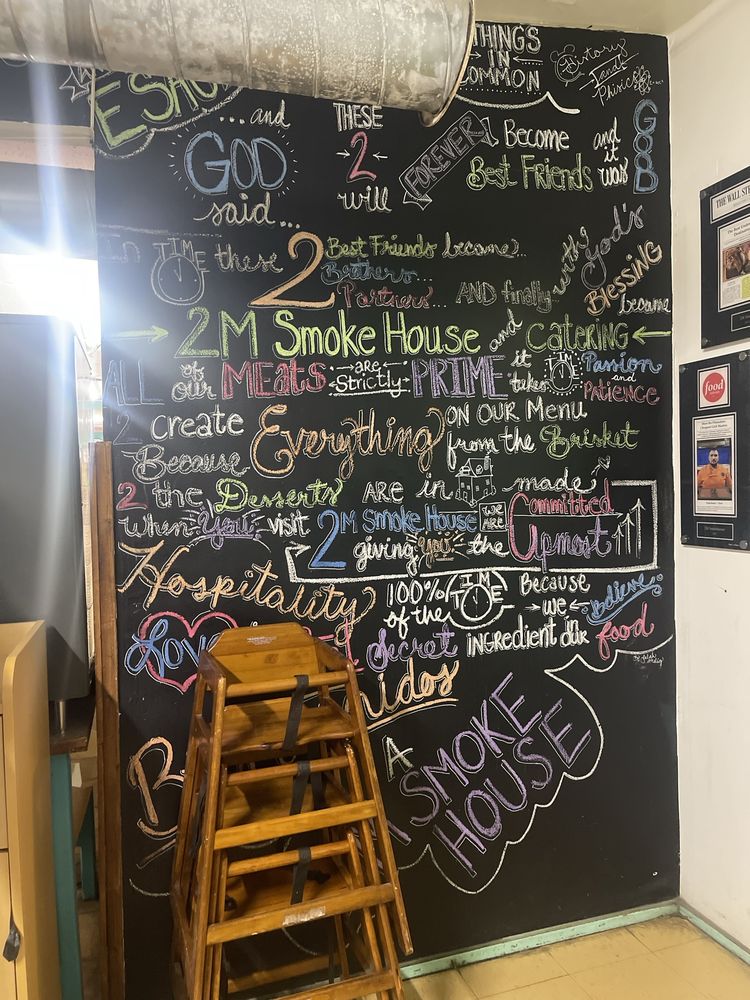 THINGS
IN
COMMON
History
and
Physics
ESAU
...and
GOD
said...
THESE
2
will
FOREVER
Become
Best Friends
and
it
was
GOOD
in TIME these 2 Best Friends became...
Brothers...
Partners... AND finally
with God's
BLESSING
became
2M Smoke House and CATERING
ALL of our MEATS are Strictly PRIME it takes TIME Passion
and
PATIENCE
2 create Everything ON OUR Menu
from the Brisket
2 the Desserts ARE in made
Because
when You visit 2M Smoke House WE ARE Committed
2 giving you the Upmost
Hospitality 100% of the TIME Because
we Believe
Love
Secret INgREdiENT in our food
nidos
A
SMOKE
HOUSE
THE WALL ST
food